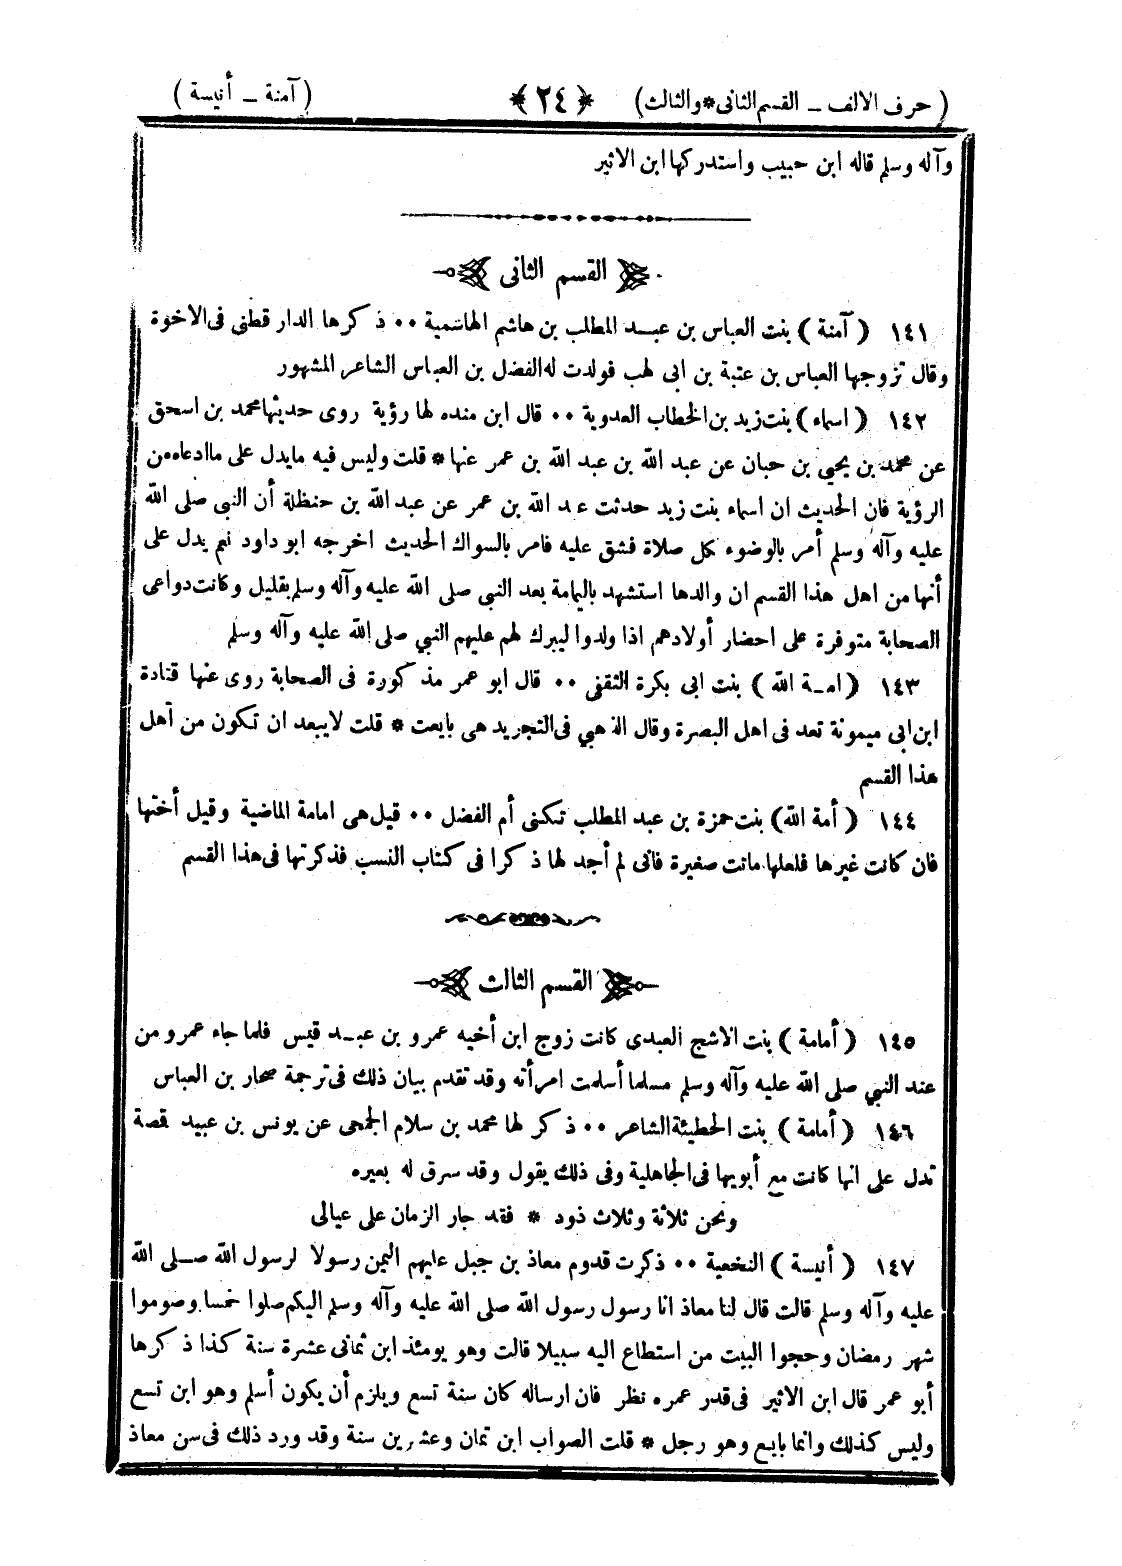 ( حرف الالف – القسم الثانى * والثالث ) ﴿ ٢٤ ﴾ ( آمنة – أنيسة )
وآله وسلم قاله ابن حبيب واستدركها ابن الاثير
القسم الثانى
١٤١ ( آمنة ) بنت العباس بن عبد المطلب بن هاشم الهاشمية ٠٠ ذكرها الدار قطنى فى الاخوة
وقال تزوجها العباس بن عتبة بن ابى لهب فولدت له الفضل بن العباس الشاعر المشهور
١٤٢ ( اسماء ) بنت زيد بن الخطاب العدوية ٠٠ قال ابن منده لها رؤية روى حديثها محمد بن اسحق
عن محمد بن يحيى بن حبان عن عبد الله بن عبد الله بن عمر عنها * قلت وليس فيه مايدل على ماادعاه من
الرؤية فان الحديث ان اسماء بنت زيد حدثت عبد الله بن عمر عن عبد الله بن حنظلة أن النبى صلى الله
عليه وآله وسلم أمر بالوضوء بكل صلاة فشق عليه فامر بالسواك الحديث اخرجه ابو داود نعم يدل على
أنها من اهل هذا القسم ان والدها استشهد باليمامة بعد النبى صلى الله عليه وآله وسلم بقليل وكانت دواعى
الصحابة متوفرة على احضار أولادهم اذا ولدوا ليبرك لهم عليهم النبي صلى الله عليه وآله وسلم
١٤٣ ( امة الله ) بنت ابى بكرة الثقفى ٠٠ قال ابو عمر مذكورة فى الصحابة روى عنها قتادة
ابن ابى ميمونة تعد فى اهل البصرة وقال الذهبي فى التجريد هى بايعت * قلت لا يبعد ان تكون من أهل
هذا القسم
١٤٤ ( أمة الله) بنت حمزة بن عبد المطلب تكنى أم الفضل ٠٠ قيل هى امامة الماضية وقيل أختها
فان كانت غيرها فلعلها ماتت صغيرة فانى لم أجد لها ذكرا فى كتاب النسب فذكرتها فى هذا القسم
القسم الثالث
١٤٥ ( أمامة ) بنت الاشج العبدى كانت زوج ابن أخيه عمرو بن عبد قيس فلما جاء عمرو من
عند النبي صلى الله عليه وآله وسلم مسلما أسلمت امرأته وقد تقدم بيان ذلك فى ترجمة صحار بن العباس
١٤٦ ( أمامة ) بنت الحطيئة الشاعر ٠٠ ذكر لها محمد بن سلام الجمحى عن يونس بن عبيد قصة
تدل على انها كانت مع أبويها فى الجاهلية وفى ذلك يقول وقد سرق له بعيره
ونحن ثلاثة وثلاث ذود * فقد جار الزمان على عيالى
١٤٧ ( أنيسة ) النخعية ٠٠ ذكرت قدوم معاذ بن جبل عليهم اليمن رسولا لرسول الله صلى الله
عليه وآله وسلم قالت قال لنا معاذ انا رسول رسول الله صلى الله عليه وآله وسلم اليكم صلوا خمسا وصوموا
شهر رمضان وحجوا البيت من استطاع اليه سبيلا قالت وهو يومئذ ابن ثمانى عشرة سنة كذا ذكرها
أبو عمر قال ابن الاثير فى قدر عمره نظر فان ارساله كان سنة تسع ويلزم أن يكون أسلم وهو ابن تسع
وليس كذلك وانما بايع وهو رجل * قلت الصواب ابن ثمان وعشرين سنة وقد ورد ذلك فى سن معاذ